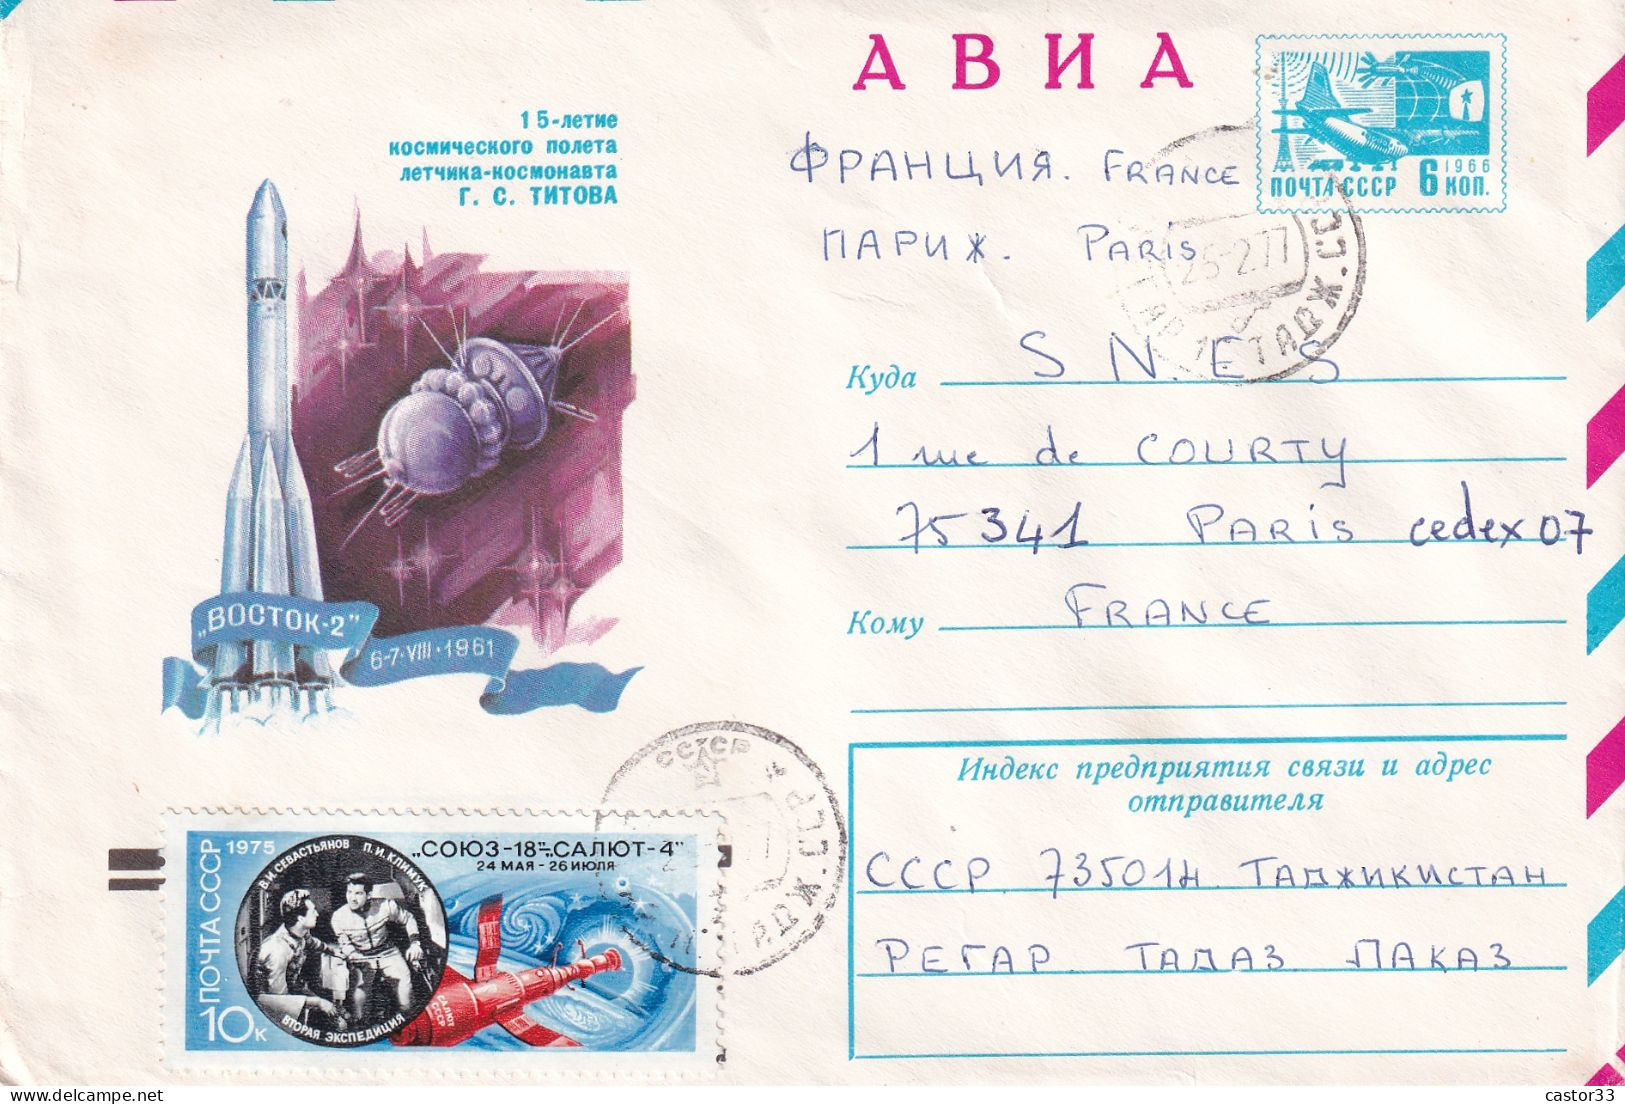 АВИА
15-летие
космического полета
летчика-космонавта
Г. С. ТИТОВА
„ВОСТОК-2”
6-7·VIII·1961
1966
ПОЧТА СССР 6 КОП.
ФРАНЦИЯ. FRANCE
ПАРИЖ. Paris
25-2.77
ТАДЖ.ССР
Куда S N.E S
1 rue de COURTY
75341 PARIS cedex 07
Кому FRANCE
Индекс предприятия связи и адрес
отправителя
СССР 735014 ТАДЖИКИСТАН
РЕГАР ТАДАЗ ПАКАЗ
СССР
ТАДЖ.ССР
ПОЧТА СССР 1975
10к
В.И.СЕВАСТЬЯНОВ П.И.КЛИМУК
ВТОРАЯ ЭКСПЕДИЦИЯ
„СОЮЗ-18”-„САЛЮТ-4”
24 МАЯ - 26 ИЮЛЯ
САЛЮТ
СССР
delcampe.net
castor33